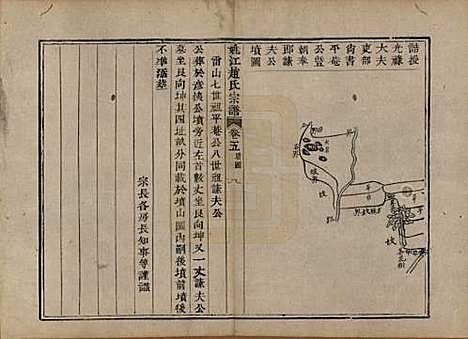 誥授
光祿
大夫
吏部
尚書
平菴
公暨
朝奉
郎謙
夫公
墳圖
姚江趙氏宗譜 卷五 墳圖 八
雷山七世祖平菴公八世祖謙夫公
公葬於彥俠公墳旁近左首數丈坐艮向坤又一丈謙夫公
墓坐艮向坤其四址畝分同載於墳山圖內嗣後墳前墳後
不準濫葬
宗長各房長知事等謹識